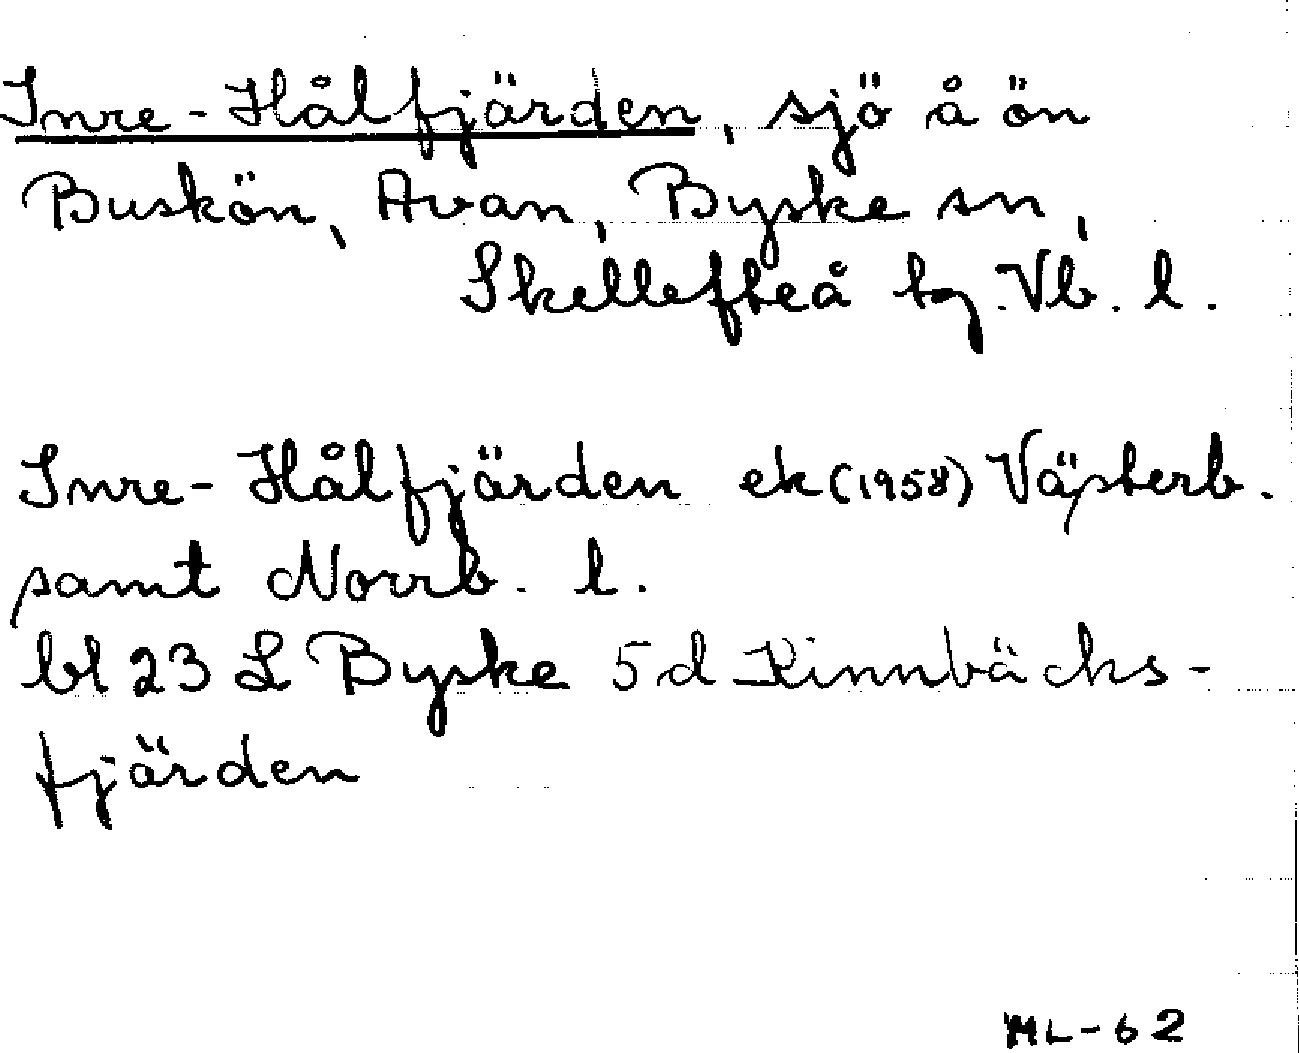 Inre-Hålfjärden, sjö å ön
Buskön, Avan, Byske sn,
Skellefteå tg. Vb. l.
Inre-Hålfjärden ek (1958) Västerb.
samt Norrb. l.
bl 23 L Byske 5d Kinnbäcks-
fjärden
ML-62